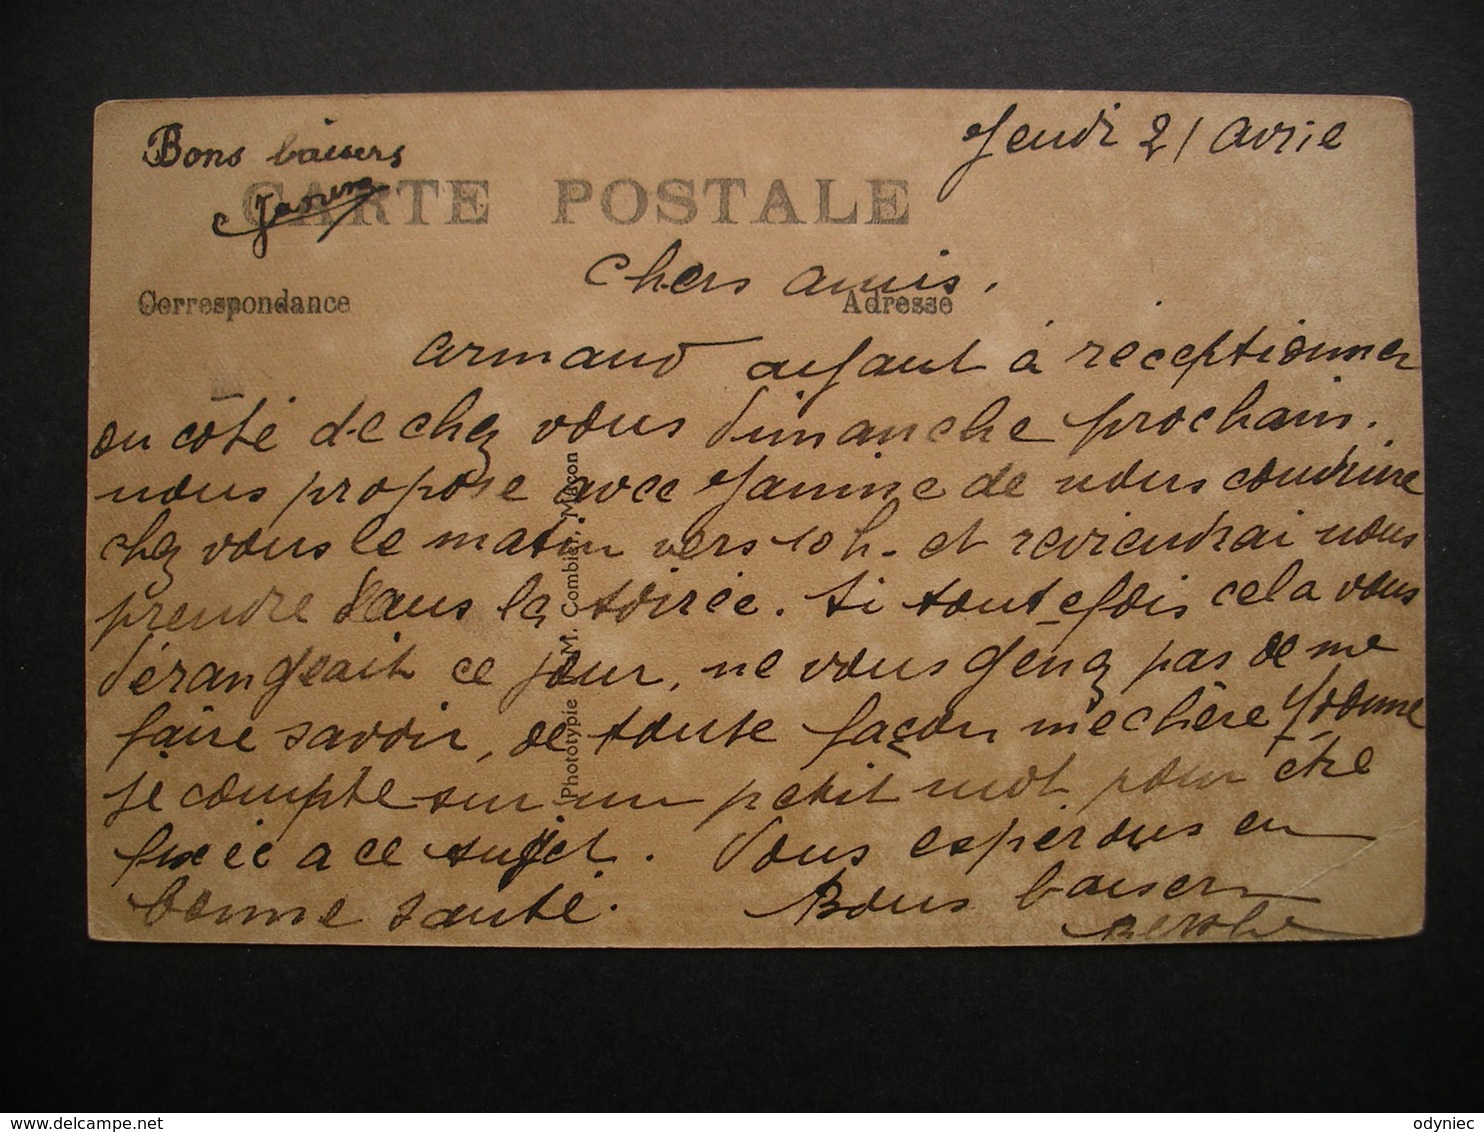 Bons baisers
Janine
Jeudi 21 avril
CARTE POSTALE
Chers amis.
Correspondance
Adresse
Armand ayant à réceptionner
du côté de chez vous Dimanche prochain.
nous propose avec Janine de nous conduire
chez vous le matin vers 10 h. et reviendrai nous
prendre dans la soirée. Si toutefois cela vous
dérangeait ce jour, ne vous genez pas de me
faire savoir, de toute façon ma chère Yvonne
je compte sur un petit mot pour être
fixée a ce sujet. Vous esperons en
bonne santé. Bons baisers
Berthe
Phototypie M. Combier, Macon
odyniec